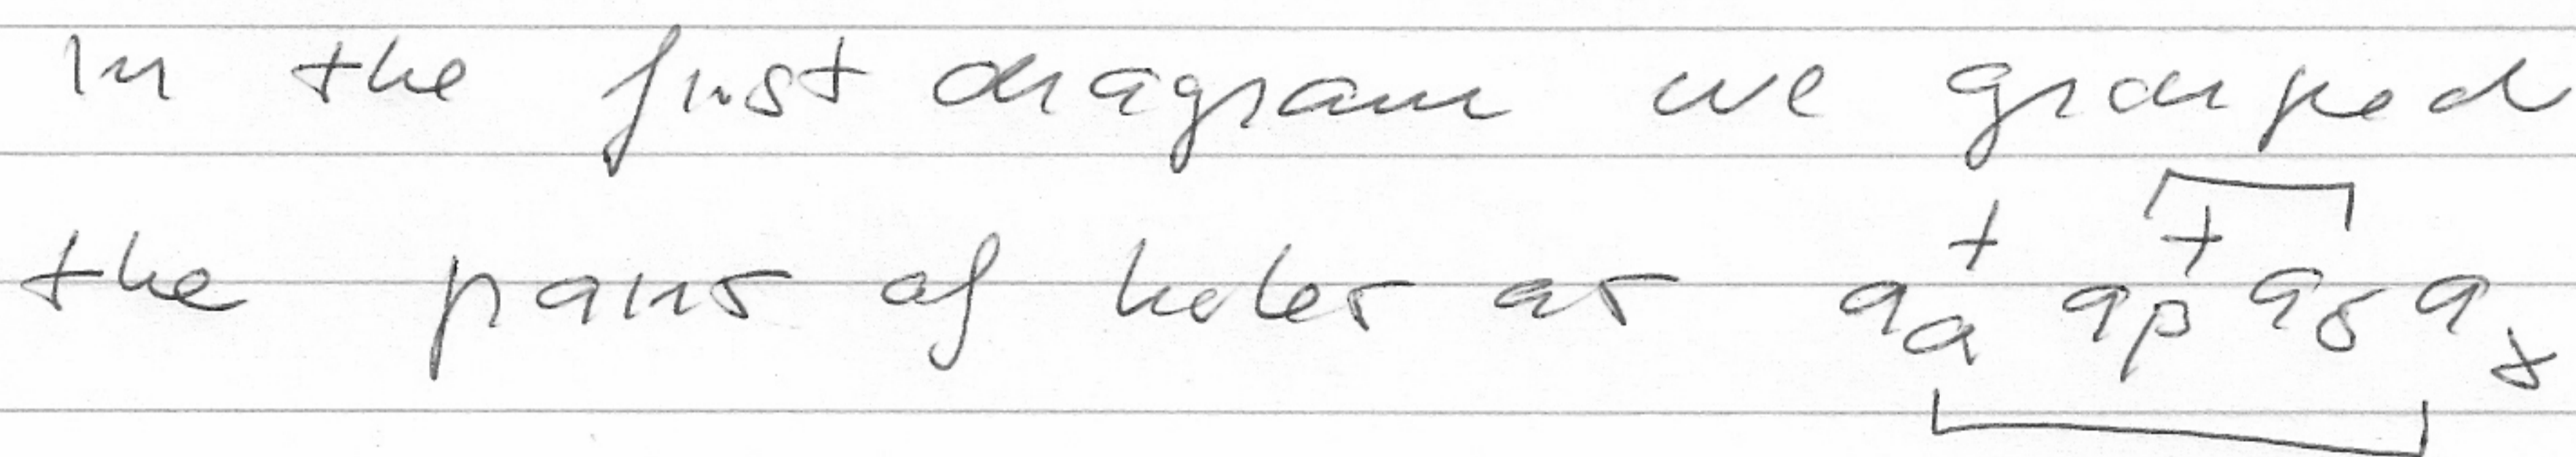 In the first diagram we grouped
the pairs of holes as a⁺_α a⁺_β a_δ a_γ